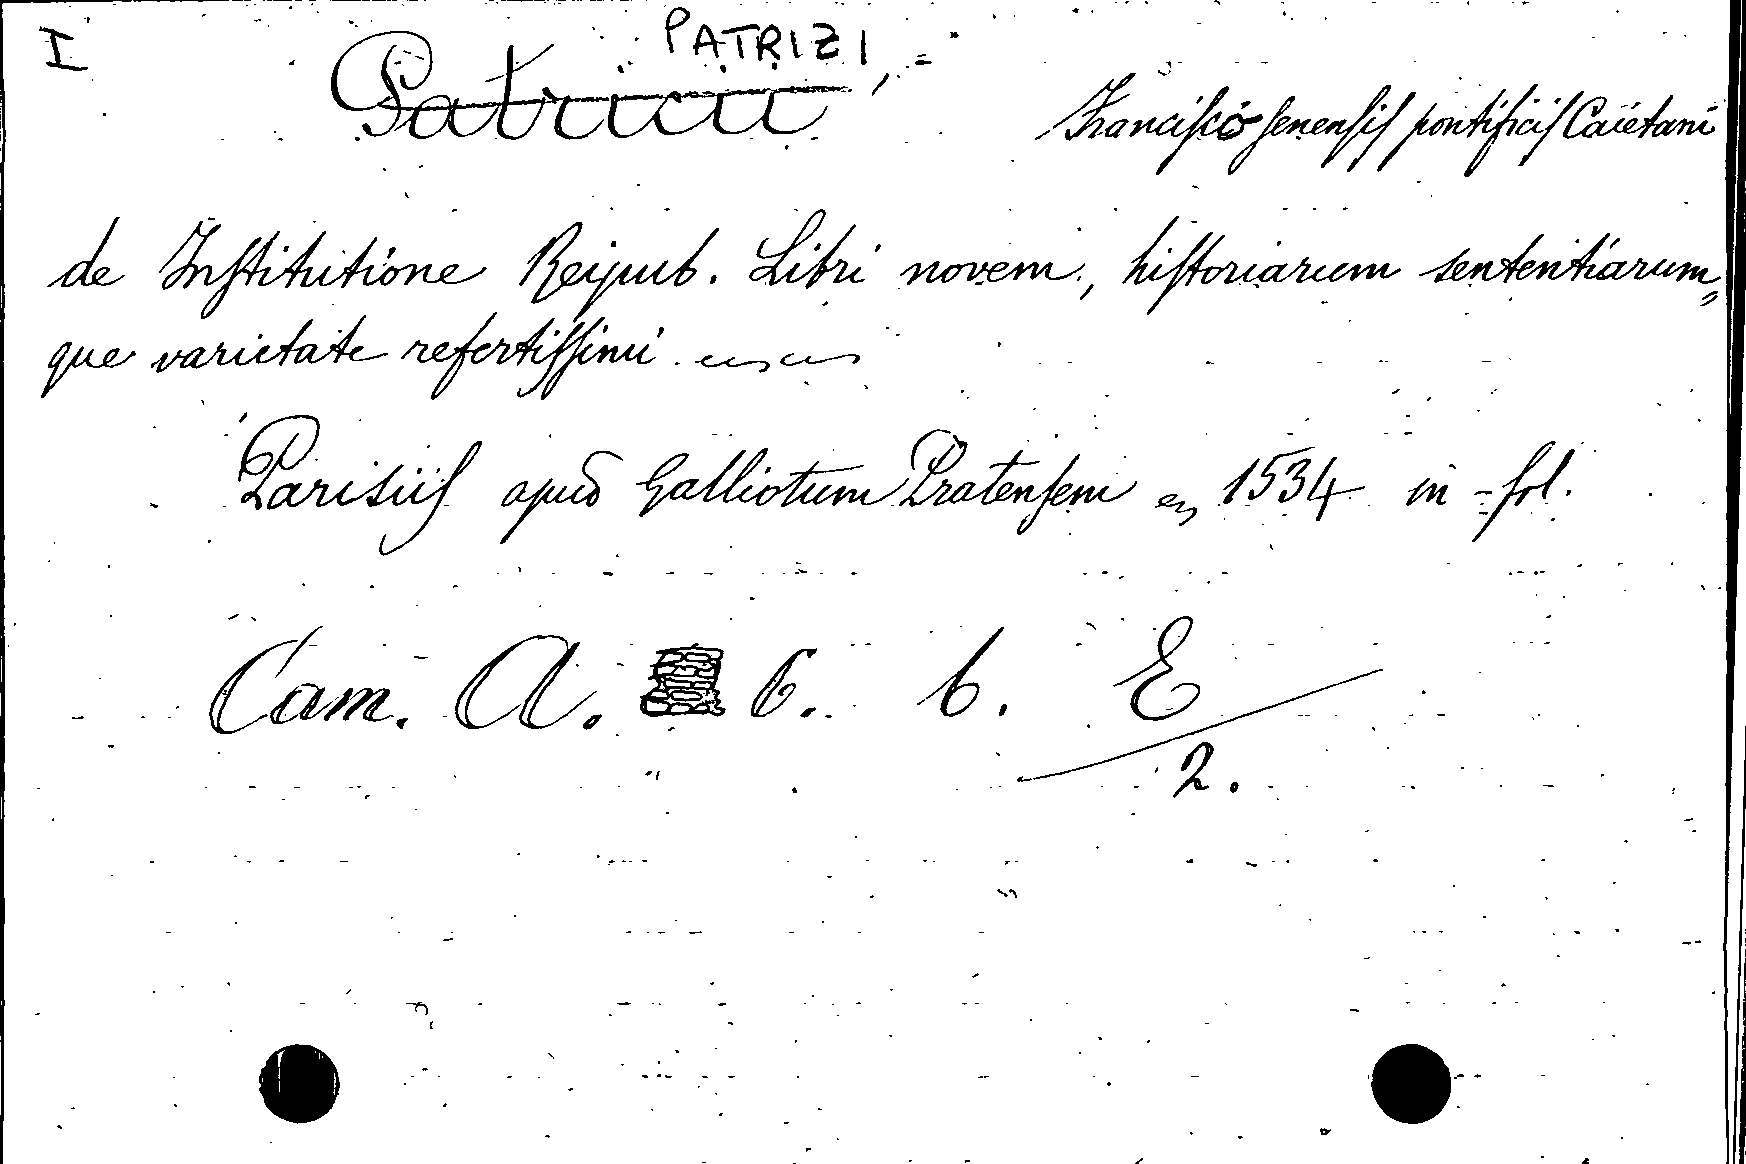 I
PATRIZI,
Patricii
Franciſco ſenenſiſ pontificiſ Caietani
de Inſtitutione Reipub. Libri novem, hiſtoriarum sententiarum„
que varietate refertiſſimi
Parisiiſ apud Galliotum Pratenſem 1534 in-fol.
Cam. A. 6. b. E
2.